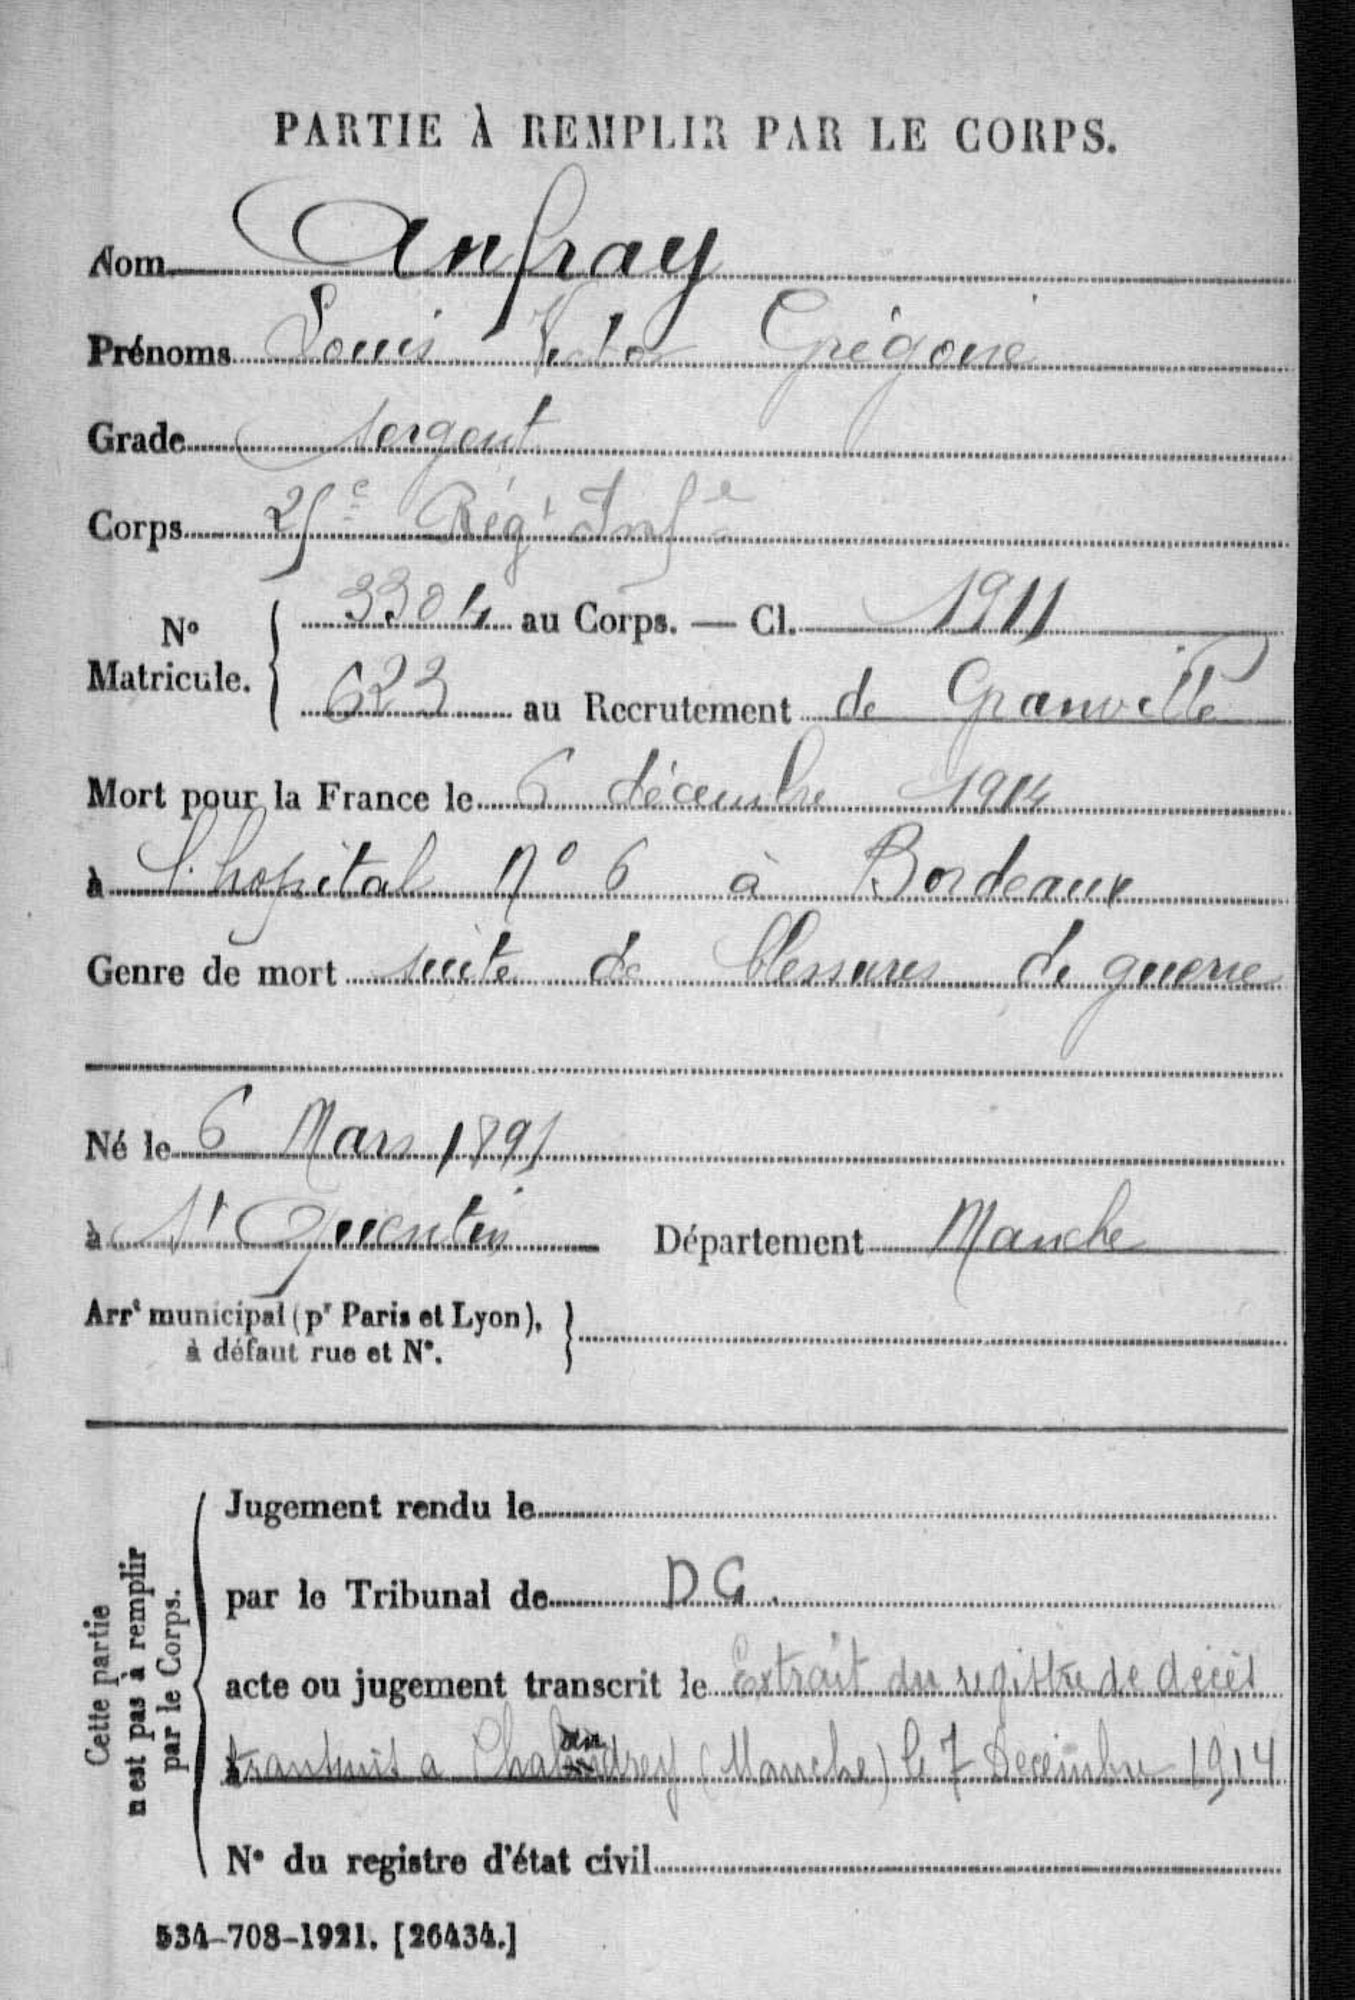 PARTIE À REMPLIR PAR LE CORPS.
Nom Anfray
Prénoms Louis Victor Grégoire
Grade sergent
Corps 25e Régt Infie
No Matricule. 3304 au Corps. — Cl. 1911
623 au Recrutement de Granville
Mort pour la France le 6 décembre 1914
à l'hopital No 6 à Bordeaux
Genre de mort suite de blessures de guerre
Né le 6 Mars 1891
à St Quentin Département Manche
Arrt municipal (pr Paris et Lyon),
à défaut rue et No.
Cette partie
n'est pas à remplir
par le Corps.
Jugement rendu le
par le Tribunal de DG.
acte ou jugement transcrit le Extrait du registre de décès
à transmis a (Manche) le 7 Décembre 1914
No du registre d'état civil
534-708-1921. [26434.]